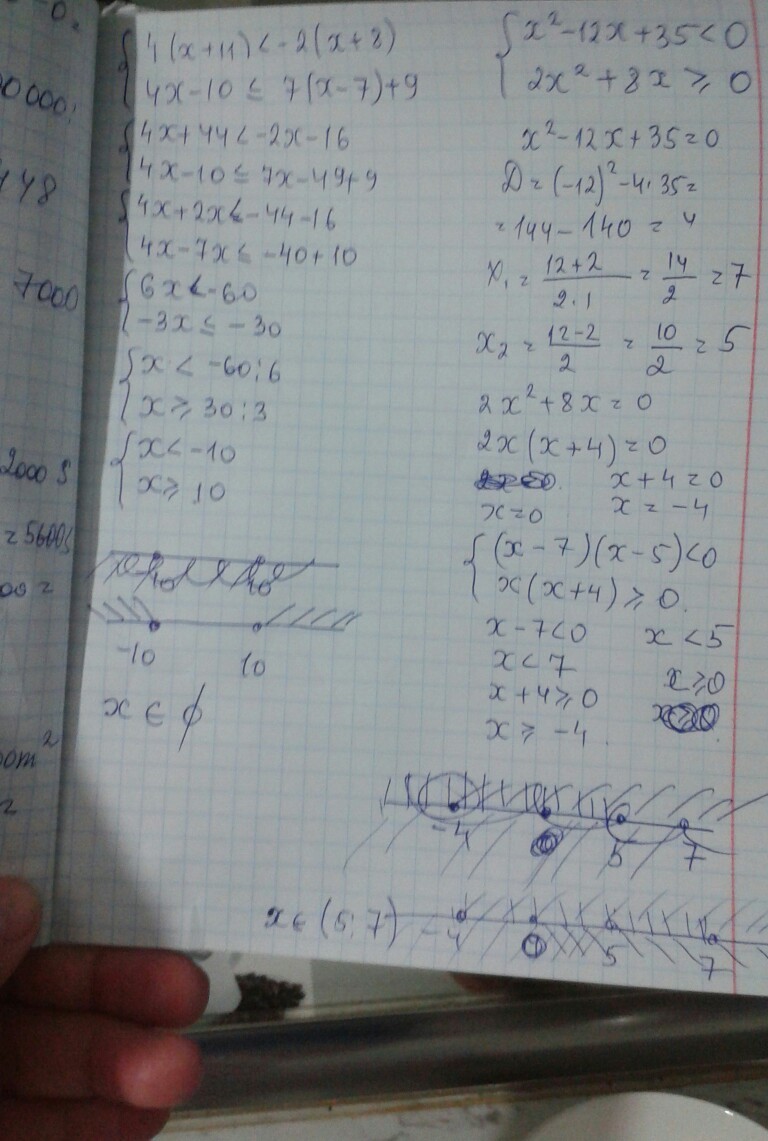 0.
0000;
148
7000
2000 S
= 5600
00 =
om²
2
{ 4(x+11) < -2(x+8)
4x-10 ≤ 7(x-7)+9
{ 4x+44 < -2x-16
4x-10 ≤ 7x-49+9
{ 4x+2x < -44-16
4x-7x ≤ -40+10
{ 6x < -60
-3x ≤ -30
{ x < -60:6
x ≥ 30:3
{ x < -10
x ≥ 10
-10 10
x ∈ ϕ
{ x²-12x+35<0
2x²+8x ≥ 0
x²-12x+35=0
D = (-12)²-4·35=
=144-140 = 4
x₁ = (12+2)/(2·1) = 14/2 = 7
x₂ = (12-2)/2 = 10/2 = 5
2x²+8x=0
2x(x+4)=0
x+4=0
x=0 x=-4
{ (x-7)(x-5)<0
x(x+4) ≥ 0.
x-7<0 x<5
x<7 x≥0
x+4≥0
x ≥ -4.
-4 5 7
x ∈ (5; 7) -4 0 5 7